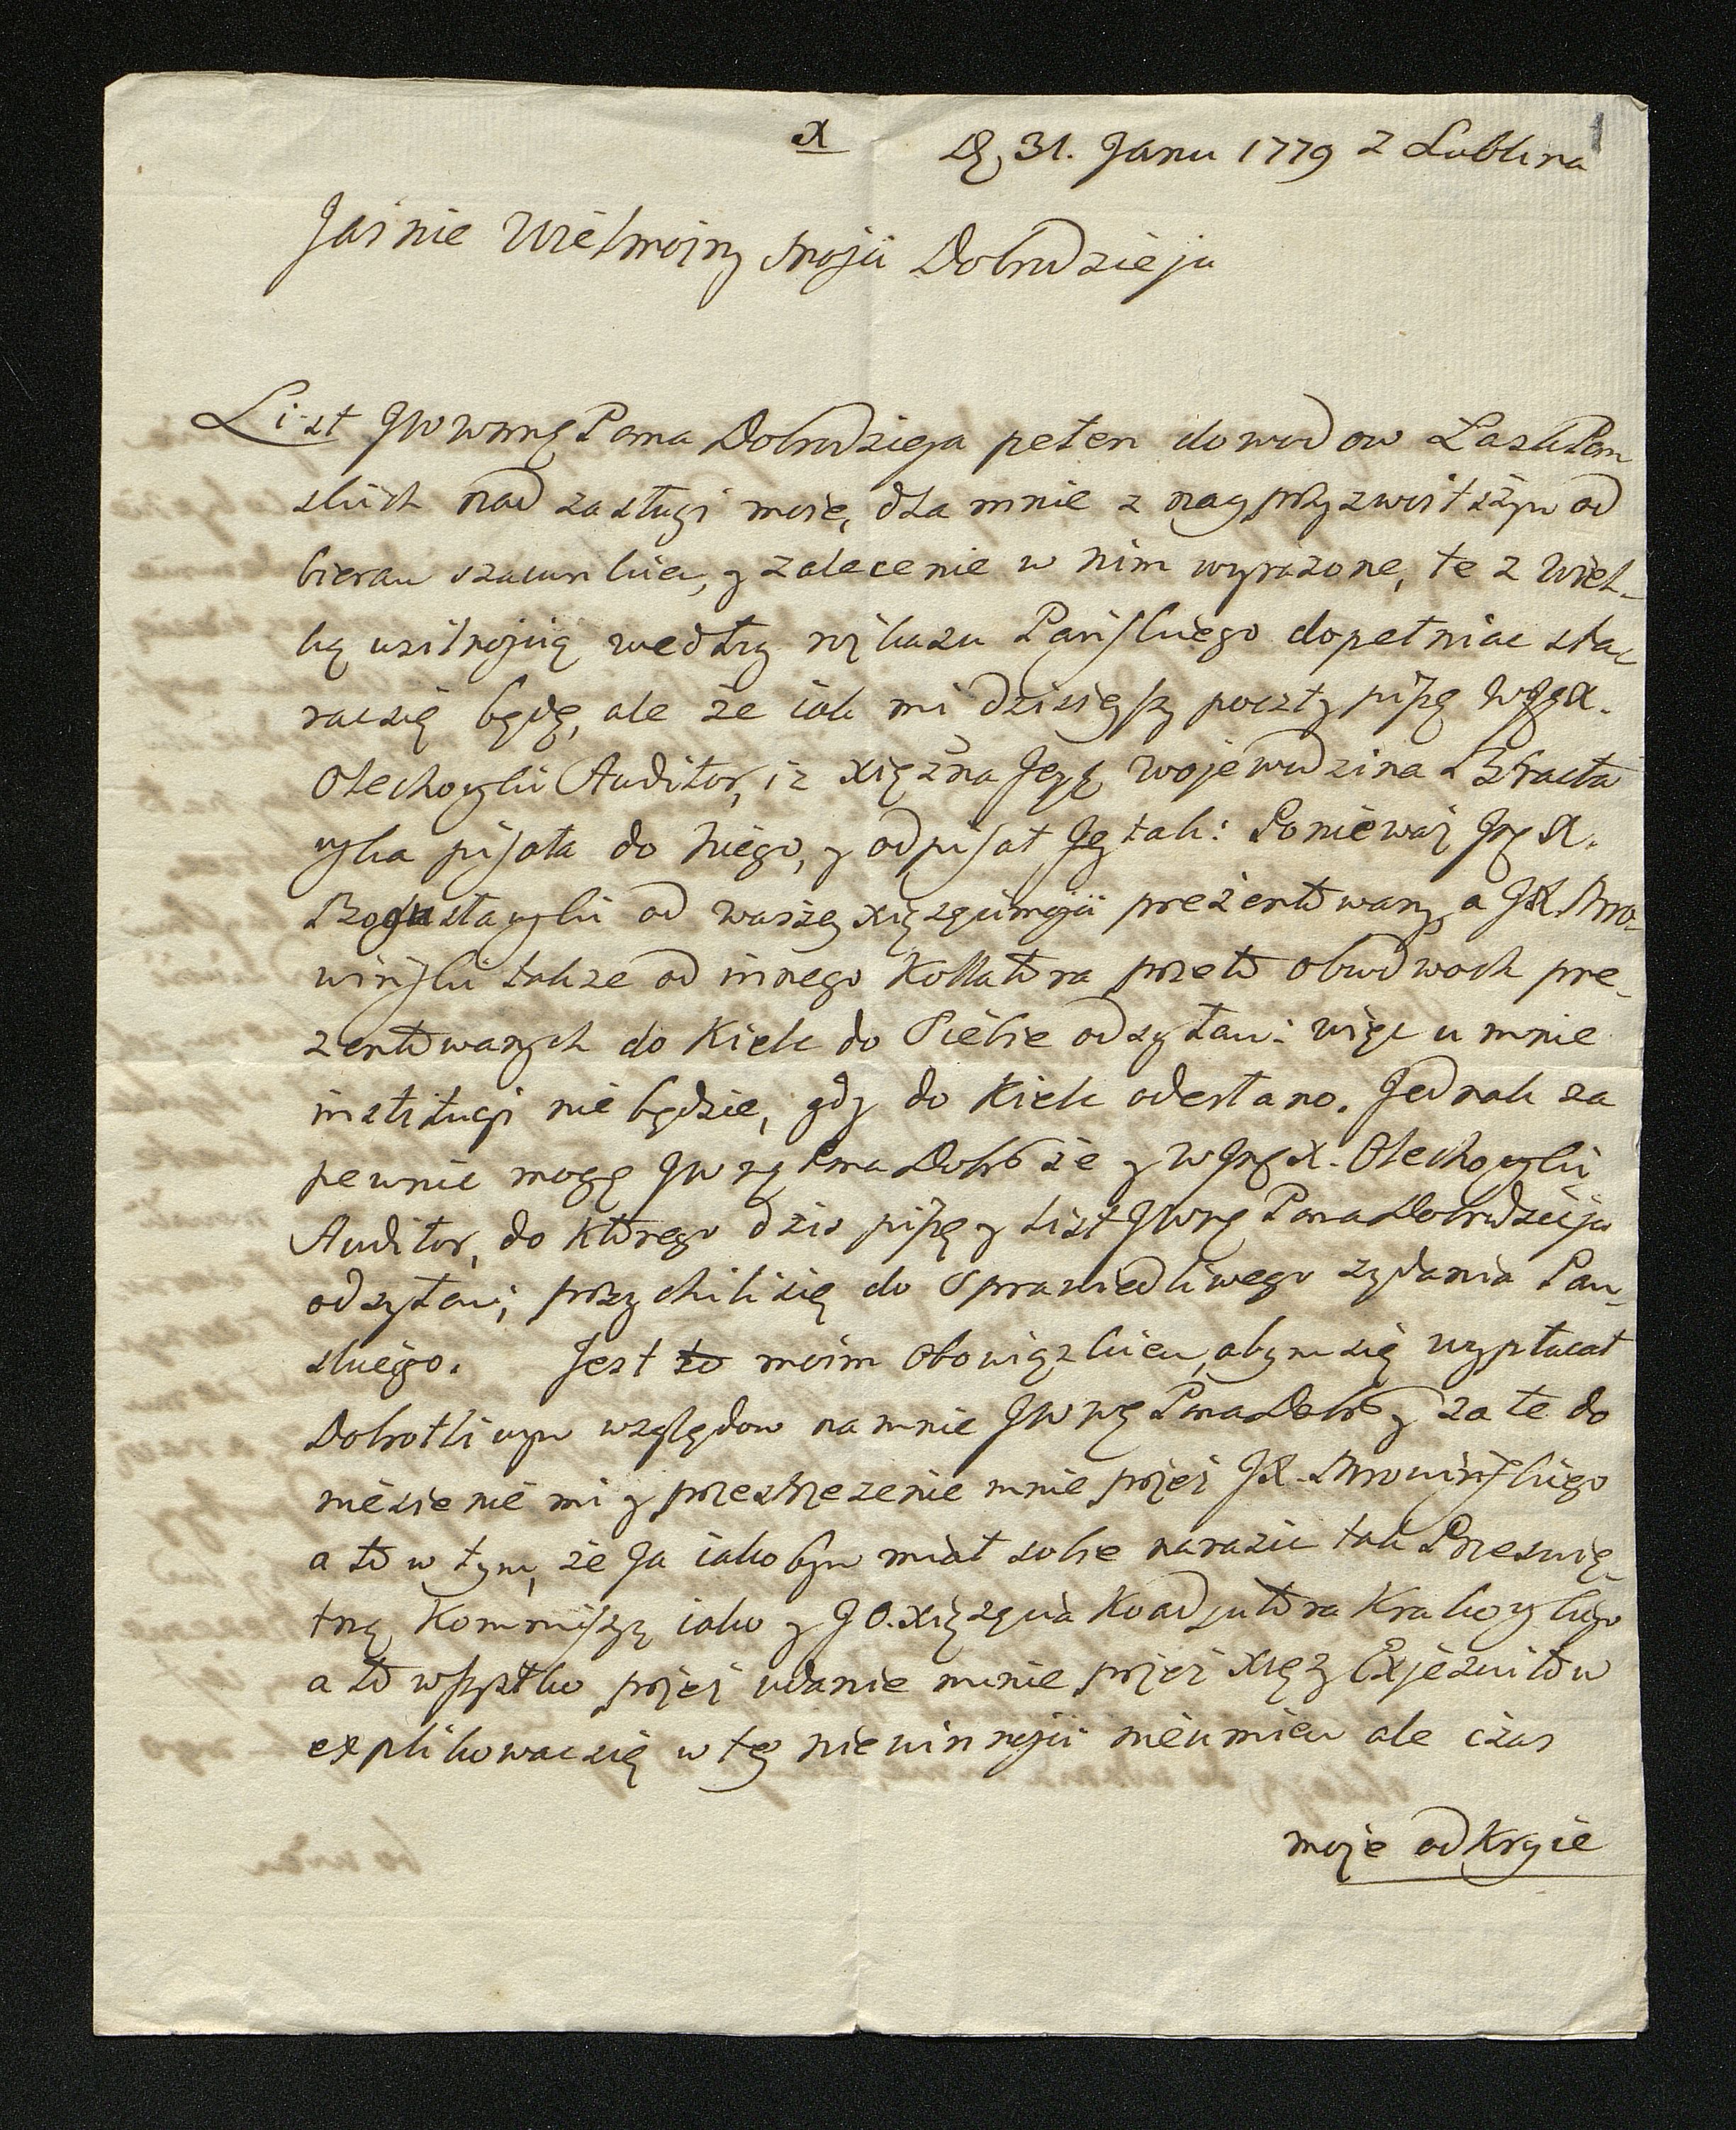 x
D. 31. Janu 1779 z Lublina
1
Jaśnie Wielmożny Mości Dobrodzieju
List JWWmę Pana Dobrodzieja pełen dowodow Łask Pan
skich nad zasługi moie, dla mnie z nayprzyzwoitszym od
bieram szacunkiem, y zalecenie w nim wyrażone, te z wiel-
ką usilnością według rozkazu Pańskiego dopełniac sta-
racsię będę, ale że iak mi dzisieyszą pocztą pisze
Olechowski Auditor, iż xiężna Jeyć wojewodzina Bracła
wska pisała do niego, y odpisał Jey tak: Ponieważ
od waszey xiążęcimości prezentowany, a
winski także od innego Kollatora przeto obudwoch pre-
zentowanych do Kielc do Siebie odsyłam: więc u mnie
instytucyi nie będzie, gdy do Kielc odesłano. Jednak za
pewnic mogę Pana Dobr że y Olechowski
Auditor, do ktorego dzis piszę y List JWmę Pana Dobrodzieja
odsyłam; przychilisię do Sprawiedliwego żądania Pan-
skiego. Jest to moim Obowiązkiem, abymsię wypłacał
Dobrotliwym względom na mnie JWWmę Pana Dobr y za te do
niesienie mi y przestrzezenie mnie przez
a to w tym, że Ja iakobym miał sobie narazic tak Przeswię-
tną Kommissyą iako y JO. Xiążęcia Koadjutora Krakowskiego
a to wszystko przez udanie mnie przez xięży ExJezuitow
explikowacsię w tey niewinności nieumiem ale czas
może odkryie